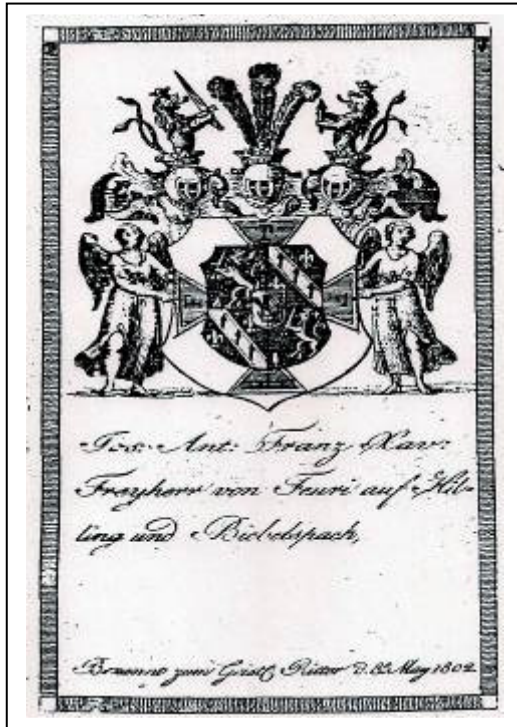 Jos: Ant: Franz Xav:
Freyherr von Feuri auf Hil-
ling und Biebelspach,
Ernennt zum Geistl. Ritter d. 8 May 1802